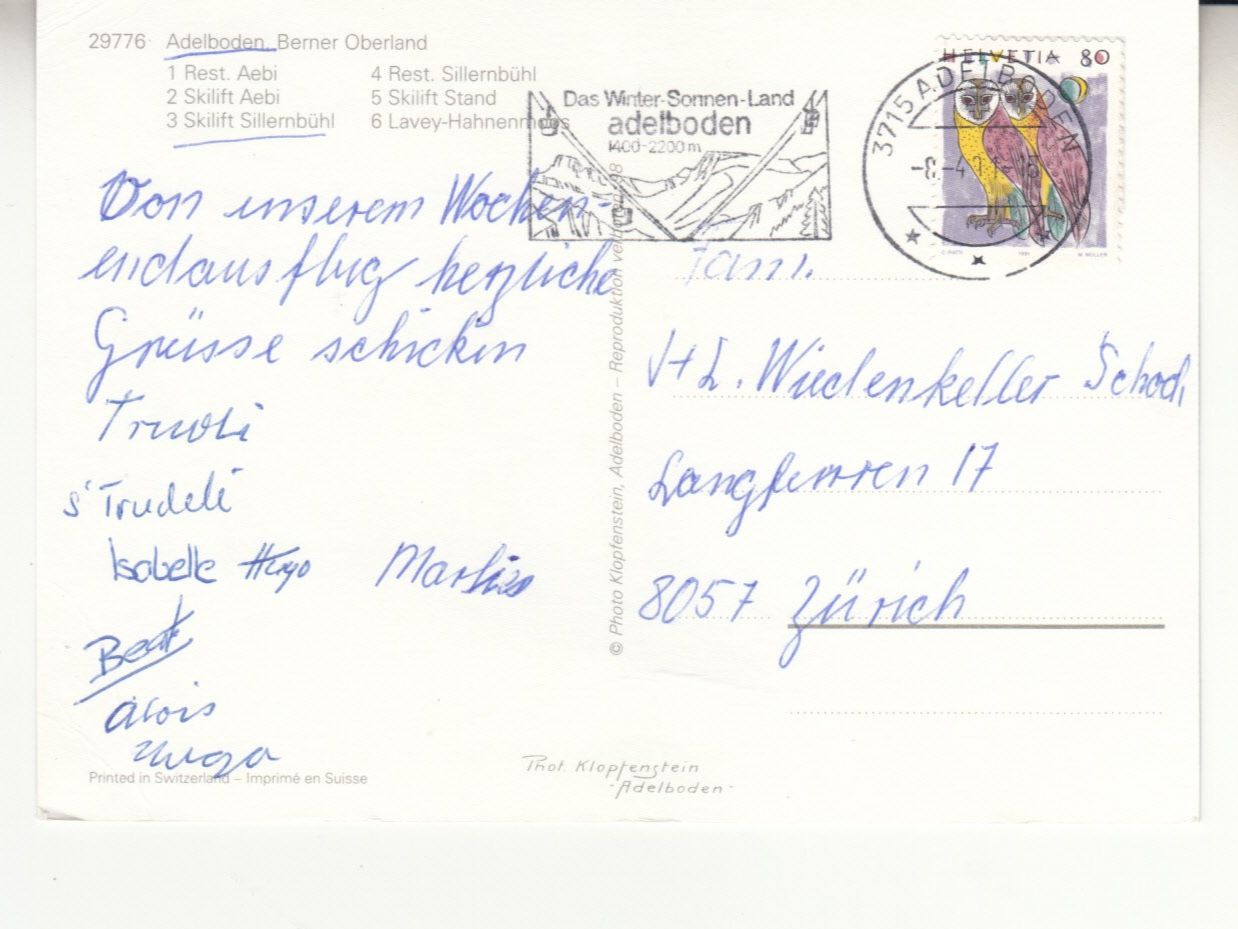 29776 Adelboden, Berner Oberland
1 Rest. Aebi
2 Skilift Aebi
3 Skilift Sillernbühl
4 Rest. Sillernbühl
5 Skilift Stand
6 Lavey-Hahnenmoos
Das Winter-Sonnen-Land
adelboden
1400-2200m
3715 ADELBODEN
HELVETIA 80
1991
Von unserem Wochen-
endausflug herzliche
Grüsse schicken
Truedi
s'Trudeli
Isabelle Hugo Marlies
Beat
Alois
Fam.
J+L. Wiedenkeller Schoch
Langfurren 17
8057 Zürich
© Photo Klopfenstein, Adelboden – Reproduktion
Printed in Switzerland – Imprimé en Suisse
Phot. Klopfenstein
- Adelboden -